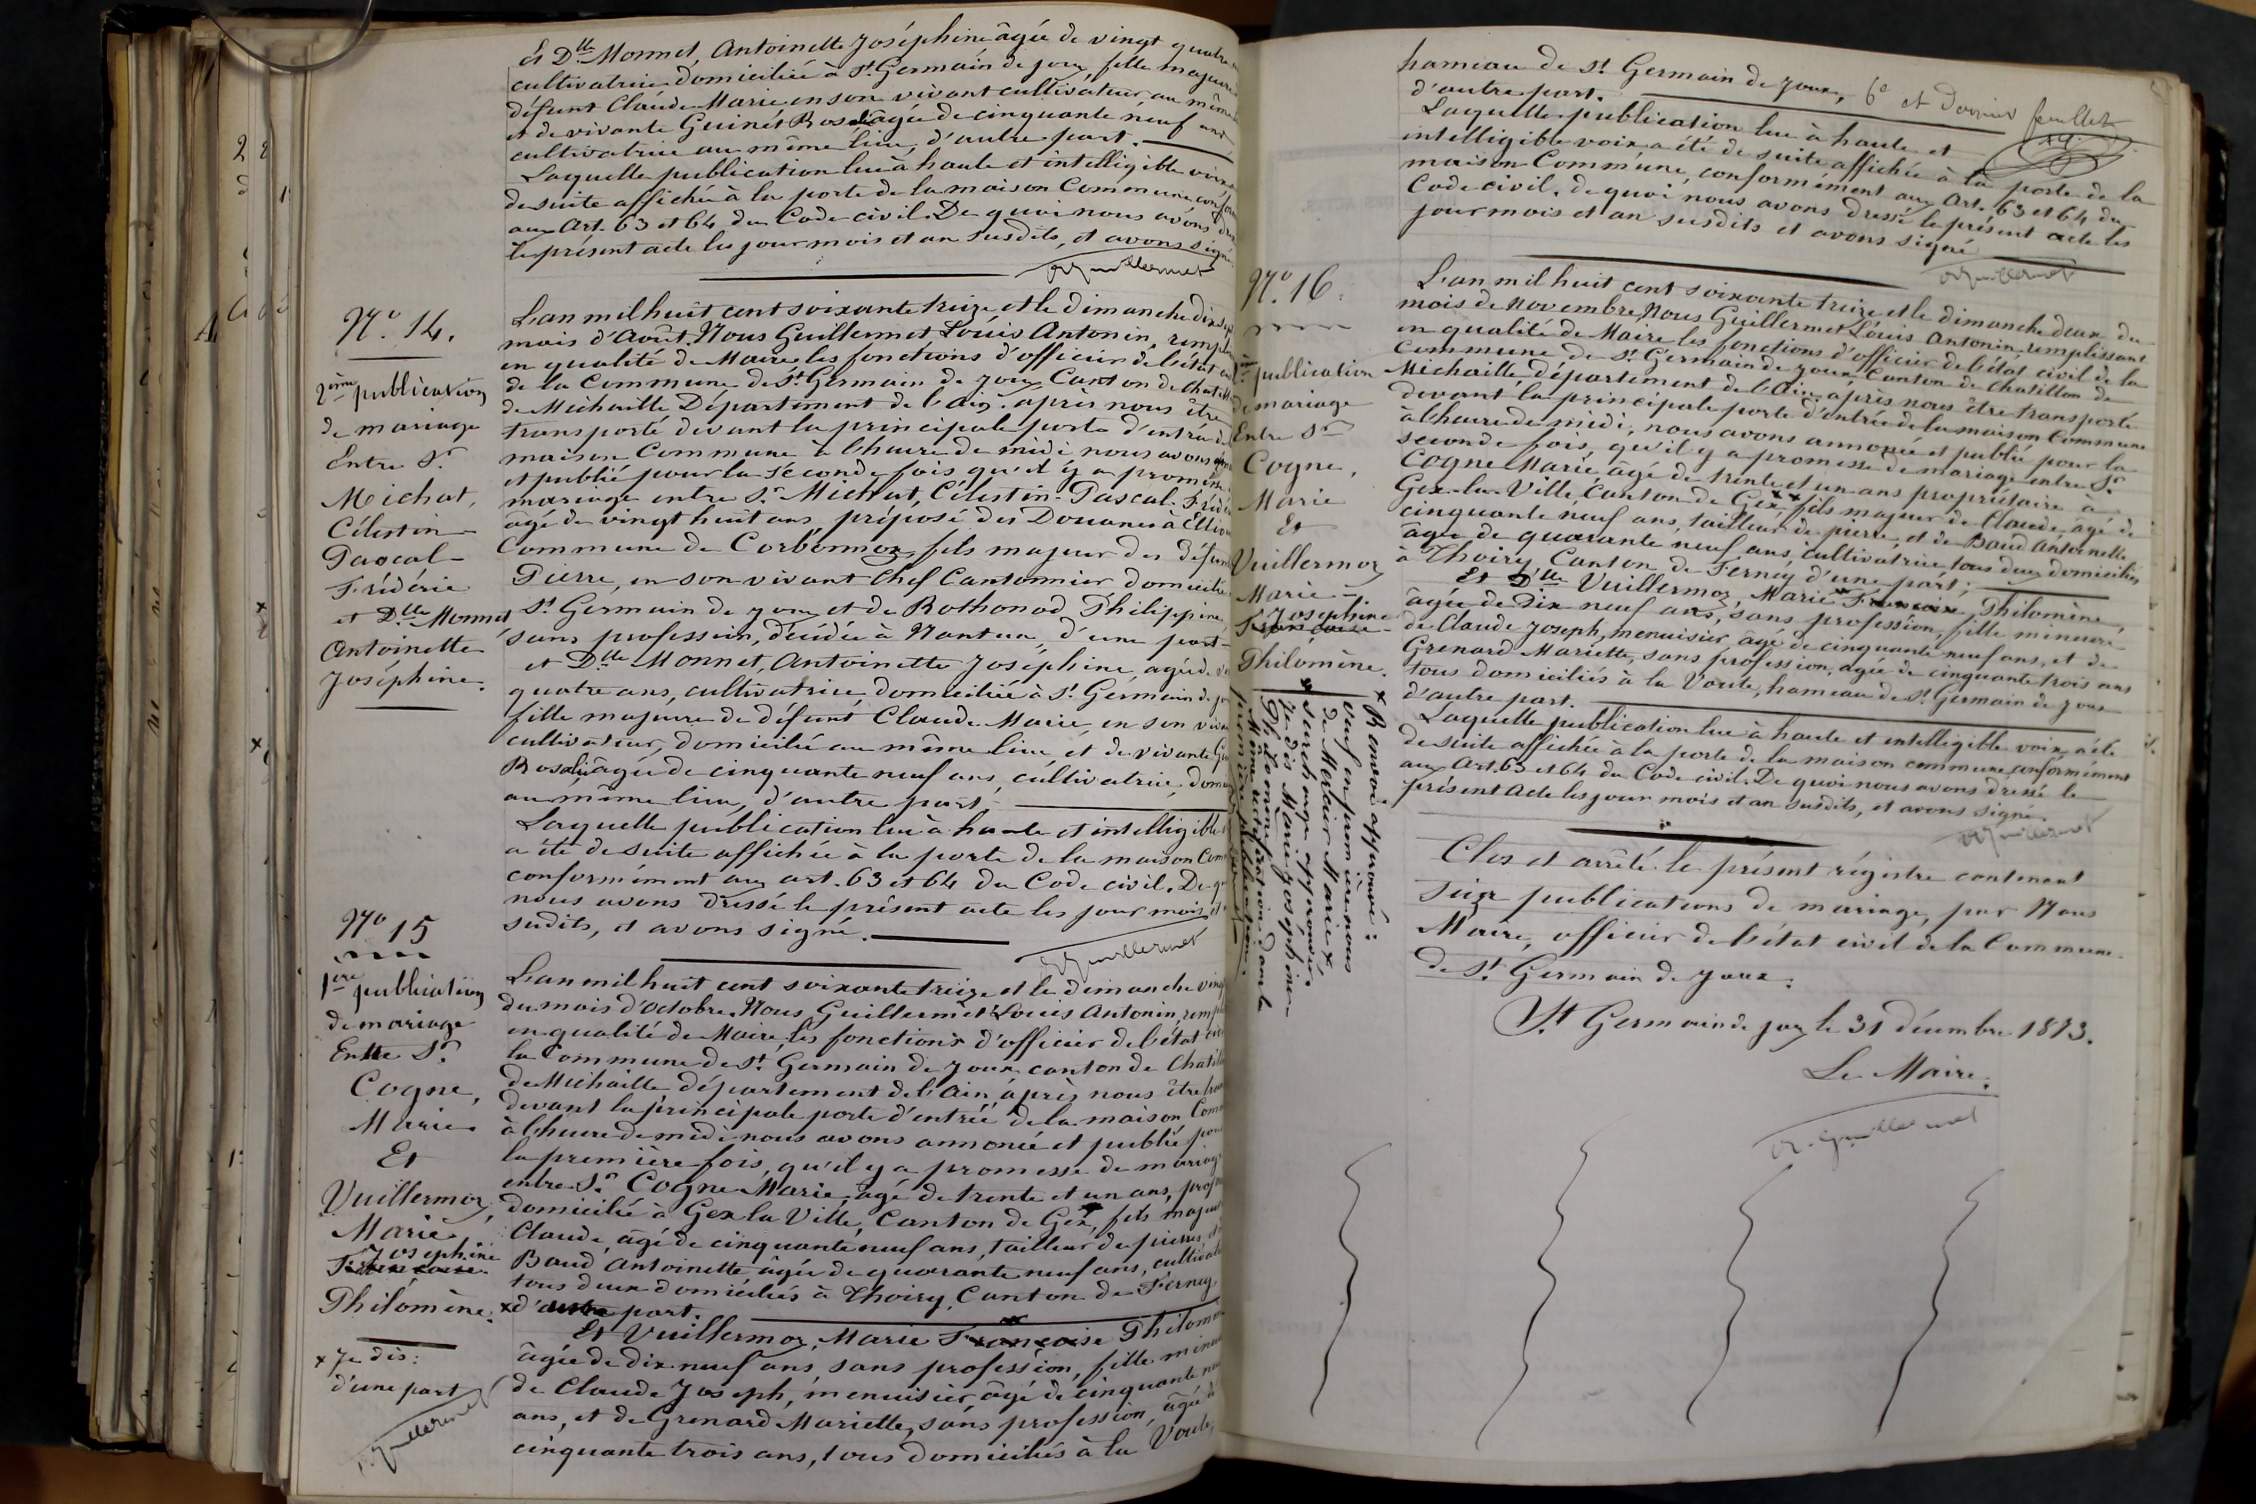 et Dlle Monnet, Antoinette Joséphine âgée de vingt quatre
cultivatrice domiciliée à St. Germain de joux fille majeure
défunt Claude Marie en son vivant cultivateur au même
et de vivante Guinet Rosalie âgée de cinquante neuf ans
cultivatrice au même lieu, d'autre part.
Laquelle publication lue à haute et intelligible voix
de suite affichée à la porte de la maison Commune
aux Art. 63 et 64 du Code civil. De quoi nous avons
le présent acte les jour mois et an susdits, et avons signé
Guillermet
No. 14.
2ème publication
de mariage
Entre Sr.
Michat,
Célestin
Pascal
Frédéric
et Dlle Monnet
Antoinette
Joséphine.
L'an mil huit cent soixante treize et le dimanche
mois d'Août. Nous Guillermet Louis Antonin,
en qualité de Maire les fonctions d'officier de l'état
de la Commune de St. Germain de joux Canton de
de Michaille Département de l'Ain. après nous être
transporté devant la principale porte d'entrée de
maison Commune à l'heure de midi nous avons
et publié pour la seconde fois qu'il y a
mariage entre Sr. Michat, Célestin-Pascal-
âgé de vingt huit ans, préposé des Douanes à
Commune de Corbonnod, fils majeur des
Pierre, en son vivant Chef Cantonnier domicilié
St. Germain de joux et de Rothonod Philippine
sans profession, décédée à Nantua, d'une part
et Dlle Monnet, Antoinette Joséphine, agée de
quatre ans, cultivatrice domiciliée à St. Germain de
fille majeure de défunt Claude Marie, en son
cultivateur, domicilié au même lieu et de vivante
Rosalie âgée de cinquante neuf ans, cultivatrice,
au même lieu, d'autre part,
Laquelle publication lue à haute et intelligible
a été de suite affichée à la porte de la maison
conformément aux art. 63 et 64 du Code civil. De
nous avons dressé le présent acte les jour mois et
sudits, et avons signé.
Guillermet
No 15
1ère publication
de mariage
Entre Sr.
Cogne,
Marie
Et
Vuillermoz,
Marie
Josephine
Françoise
Philomène.
x Je dis:
d'une part
Guillermet
L'an mil huit cent soixante treize et le dimanche
du mois d'octobre. Nous Guillermet Louis Antonin,
en qualité de Maire, les fonctions d'officier de l'état
la Commune de St. Germain de Joux canton de
de Michaille département de l'Ain, après nous être
devant la principale porte d'entrée de la maison
à l'heure de midi nous avons annoncé et publié
la première fois, qu'il y a promesse de mariage
entre Sr. Cogne Marie, âgé de trente et un ans,
domicilié à Gex la Ville, Canton de Gex, fils majeur
Claude, âgé de cinquante neuf ans, tailleur de pierres,
Baud Antoinette âgée de quarante neuf ans,
tous deux domiciliés à Thoiry, Canton de Ferney,
x d'autre part.
Et Vuillermoz, Marie Françoise
âgée de dix neuf ans sans profession, fille
de Claude Joseph, menuisier, âgé de cinquante
ans, et de Grenard Mariette, sans profession, âgée
cinquante trois ans, tous domiciliés à la Voute,
hameau de St. Germain de Joux,
d'autre part.
6e et dernier feuillet
Laquelle publication lue à haute et
intelligible voix a été de suite affichée à la porte de la
maison Commune, conformément aux Art. 63 et 64 du
Code civil. de quoi nous avons dressé le présent acte les
jour mois et an susdits et avons signé
Guillermet
No. 16.
publication
de mariage
Entre Sr
Cogne,
Marie
Et
Vuillermoz
Marie
Josephine
Françoise
Philomène.
x Renvoi approuvé:
veuf en première noces
de Mercier Marie x
surcharge approuvée,
je dis Marie Joséphine
Philomène
Même rectification dans la
première publication
L'an mil huit cent soixante treize et le dimanche deux du
mois de Novembre, Nous Guillermet Louis Antonin, remplissant
en qualité de Maire les fonctions d'officier de l'état civil de la
Commune de St. Germain de joux Canton de Chatillon de
Michaille, département de l'Ain, après nous être transporté
devant la principale porte d'entrée de la maison Commune
à l'heure de midi, nous avons annoncé et publié pour la
seconde fois, qu'il y a promesse de mariage entre Sr.
Cogne Marie âgé de trente et un ans propriétaire à
Gex-la-Ville, Canton de Gex, fils majeur de Claude, âgé de
cinquante neuf ans, tailleur de pierre, et de Baud Antoinette
âgée de quarante neuf ans, cultivatrice, tous deux domiciliés
à Thoiry, Canton de Ferney d'une part;
Et Dlle Vuillermoz, Marie Françoise, Philomène,
âgée de Dix neuf ans, sans profession, fille mineure
de Claude Joseph, menuisier, âgé de cinquante neuf ans, et de
Grenard Mariette, sans profession, agée de cinquante trois ans
tous domiciliés à la Voute, hameau de St. Germain de Joux
d'autre part.
Laquelle publication lue à haute et intelligible voix, a été
de suite affichée à la porte de la maison commune, conformément
aux Art. 63 et 64 du Code civil. De quoi nous avons dressé le
présent Acte les jour mois et an susdits, et avons signé.
Guillermet
Clos et arrêté le présent régistre contenant
seize publications de mariage, par Nous
Maire, officier de l'état civil de la Commune
de St. Germain de Joux.
St Germain de joux le 31 décembre 1873.
Le Maire.
Guillermet